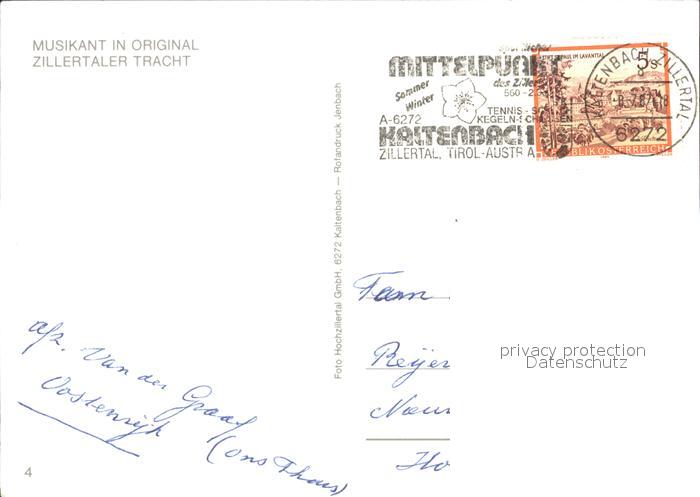 MUSIKANT IN ORIGINAL
ZILLERTALER TRACHT
sportlicher
MITTELPUNKT
des Ziller
Sommer
Winter
TENNIS - S
A-6272
KEGELN-SCH
KALTENBACH
ZILLERTAL, TIROL-AUSTRIA
PAUL IM LAVANTAL
5s
REPUBLIK ÖSTERREICH
KALTENBACH ZILLERTAL
6272
Foto Hochzillertal GmbH, 6272 Kaltenbach — Rotandruck Jenbach
afz. Van der Graaf
Oostenrijk
(ons Thuis)
Fam
Reijer
Ho
privacy protection
Datenschutz
4